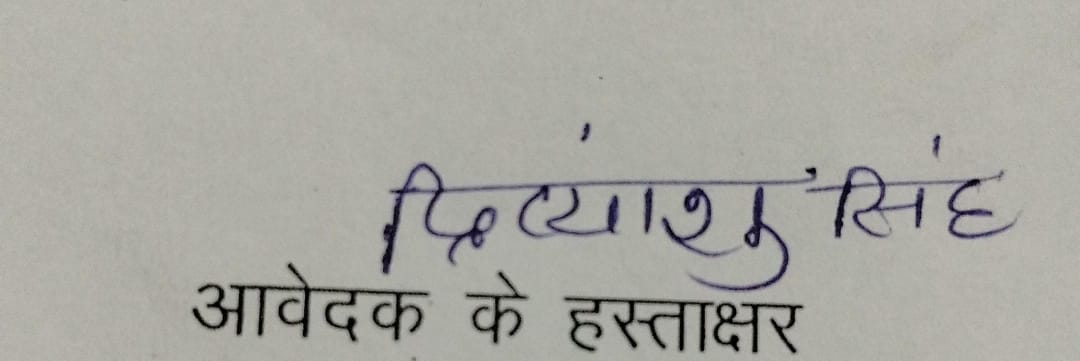 दिव्यांशु सिंह
आवेदक के हस्ताक्षर